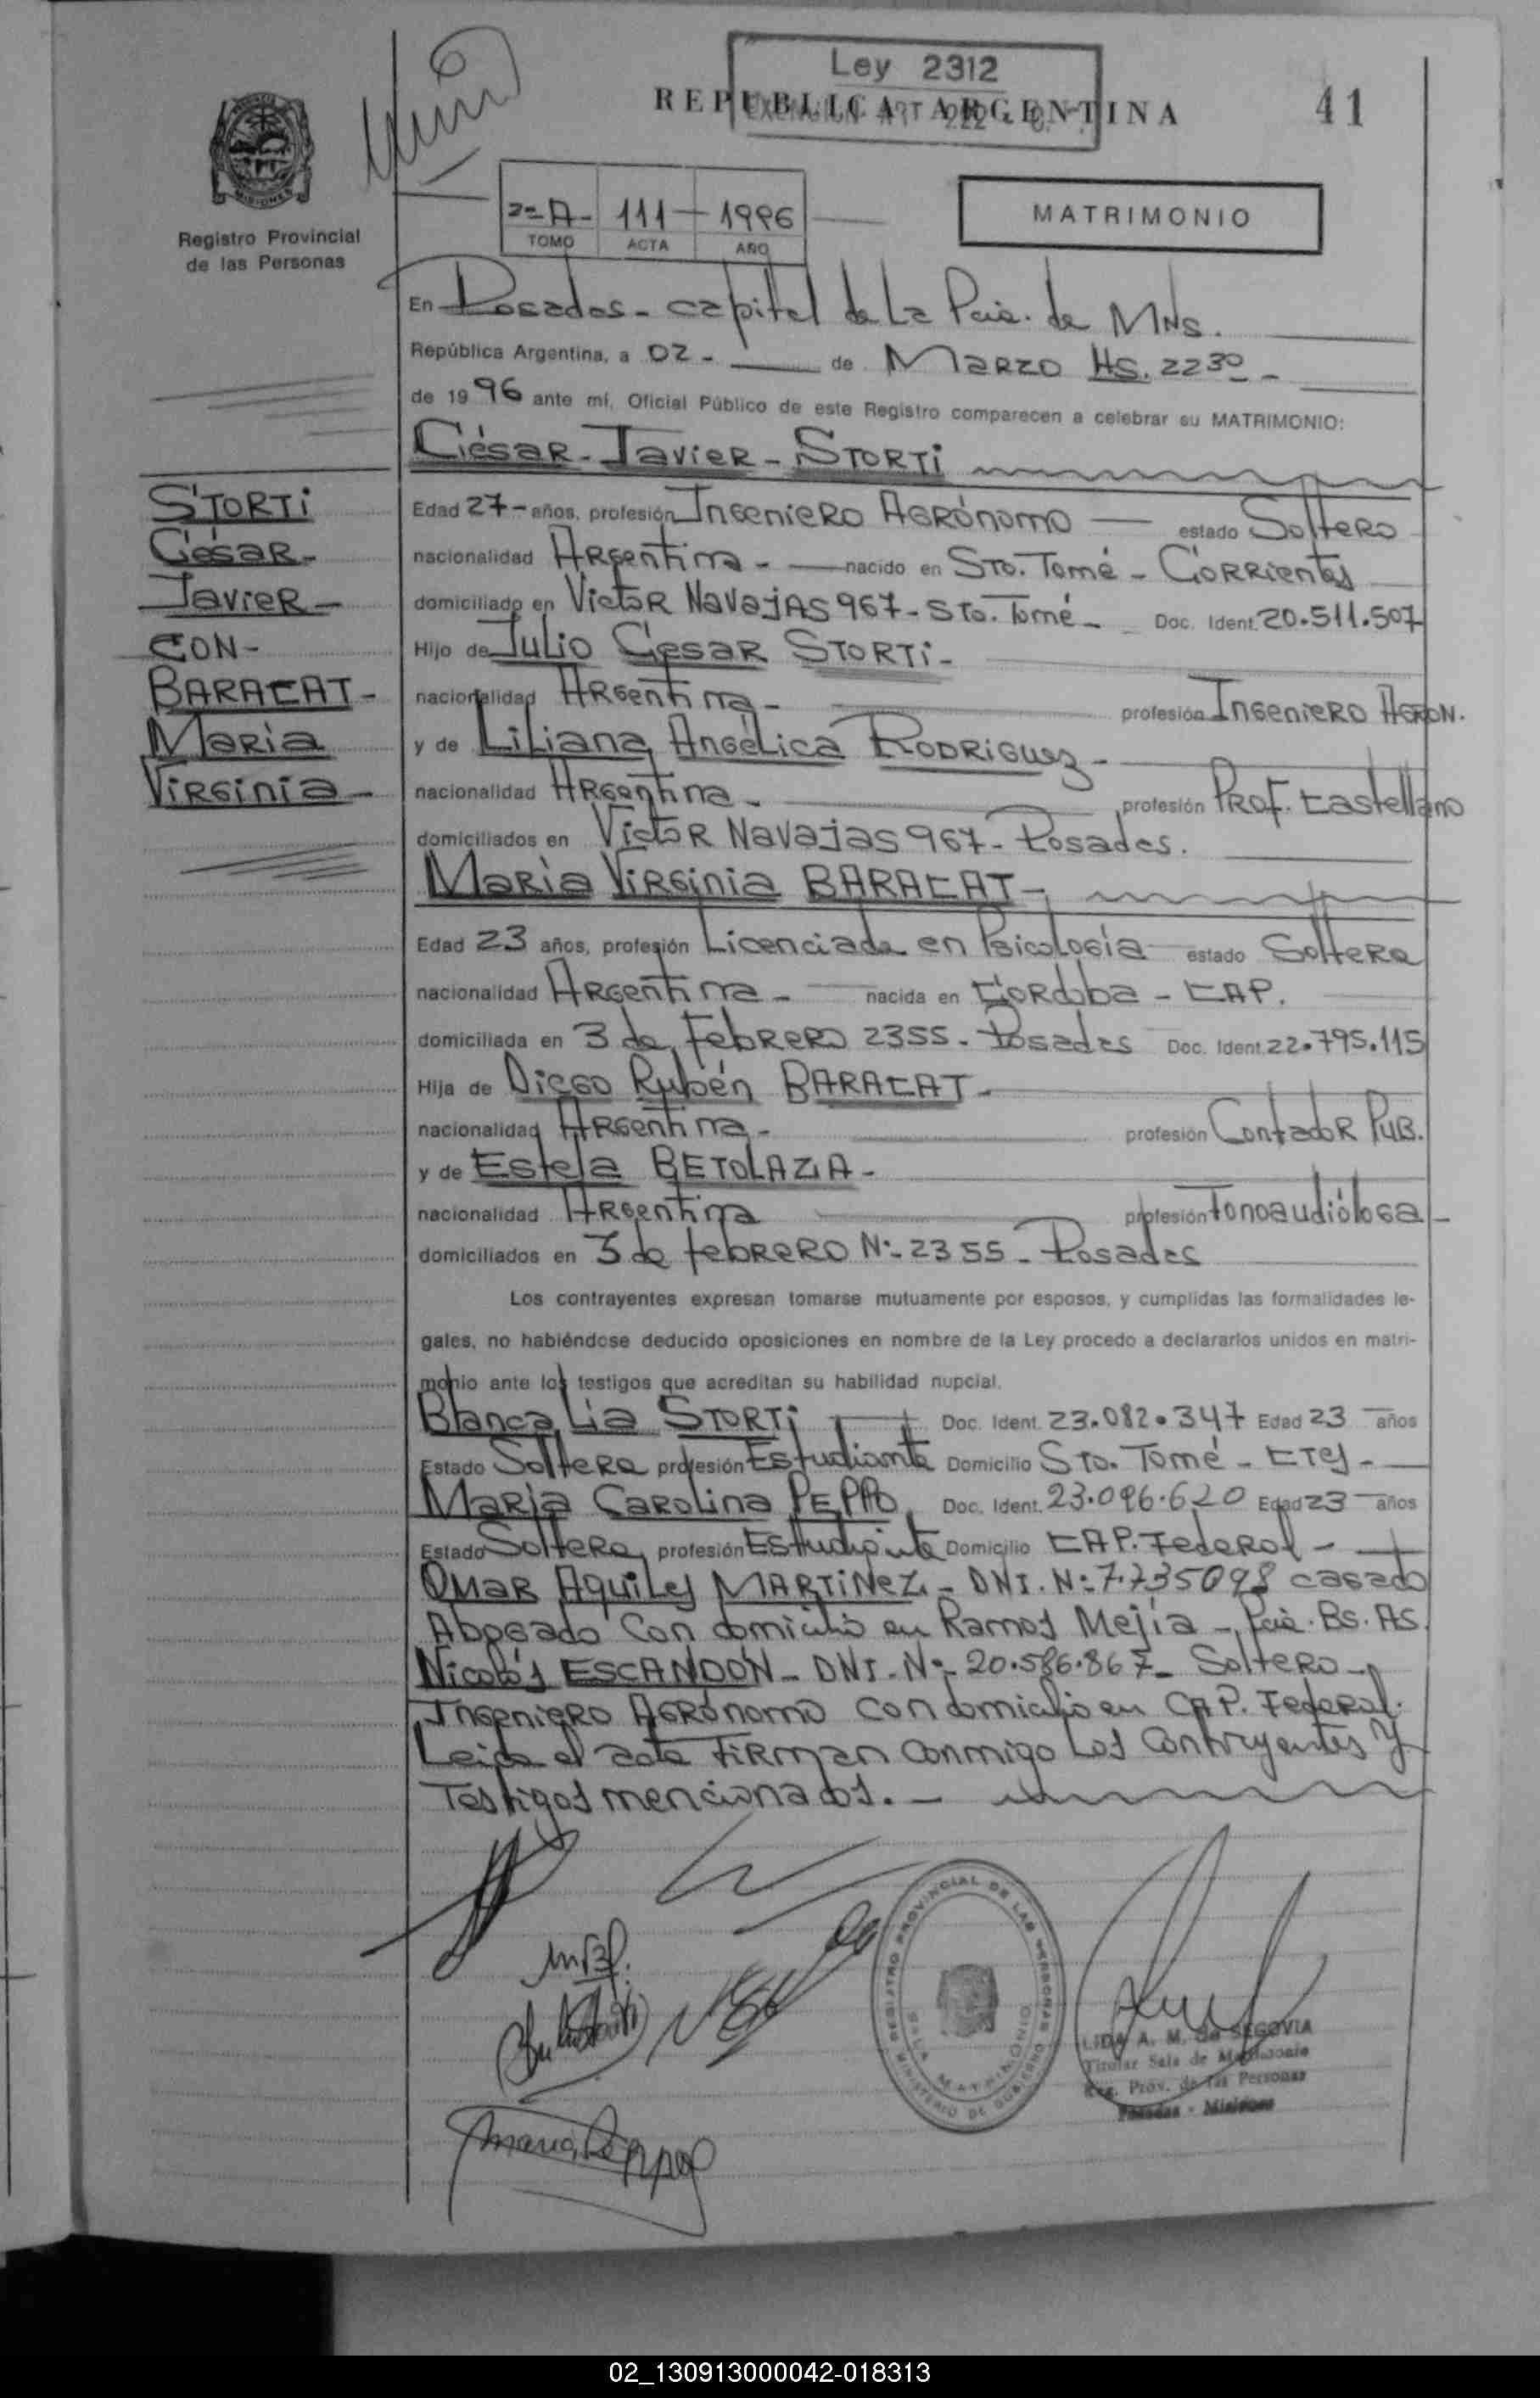 Ley 2312
REPUBLICA ARGENTINA
41
2=A- 111 - 1996
TOMO ACTA AÑO
MATRIMONIO
Registro Provincial
de las Personas
En Posadas - capital de La Pcia. de MNs.
República Argentina, a 02 - de Marzo HS. 2230 -
de 1996 ante mí, Oficial Público de este Registro comparecen a celebrar su MATRIMONIO:
César - Javier - STORTI
STORTI
César -
Javier -
CON -
BARACAT -
María
Virginia -
Edad 27 - años, profesión Ingeniero Agrónomo estado Soltero
nacionalidad Argentina - nacido en Sto. Tomé - Corrientes
domiciliado en Victor Navajas 967 - Sto. Tomé - Doc. Ident. 20.511.507
Hijo de Julio Cesar STORTI -
nacionalidad Argentina - profesión Ingeniero Agron.
y de Liliana Angélica Rodriguez -
nacionalidad Argentina - profesión Prof. Castellano
domiciliados en Victor Navajas 967 - Posadas.
María Virginia BARACAT -
Edad 23 años, profesión Licenciada en Psicología estado Soltera
nacionalidad Argentina - nacida en Córdoba - CAP.
domiciliada en 3 de Febrero 2355 - Posadas Doc. Ident. 22.795.115
Hija de Diego Rubén BARACAT -
nacionalidad Argentina - profesión Contador Pub.
y de Estela BETOLAZA -
nacionalidad Argentina profesión Fonoaudióloga -
domiciliados en 3 de febrero N:- 2355 - Posadas
Los contrayentes expresan tomarse mutuamente por esposos, y cumplidas las formalidades le-
gales, no habiéndose deducido oposiciones en nombre de la Ley procedo a declararlos unidos en matri-
monio ante los testigos que acreditan su habilidad nupcial.
Blanca Lia STORTI Doc. Ident. 23.082.347 Edad 23 años
Estado Soltera profesión Estudiante Domicilio Sto. Tomé - Ctes -
María Carolina PEPPO Doc. Ident. 23.096.620 Edad 23 años
Estado Soltera profesión Estudiante Domicilio CAP. Federal -
Omar Aquiles MARTINEZ - DNI. N: 7.735098 casado
Abogado Con domicilio en Ramos Mejía - Pcia. Bs. As.
Nicolás ESCANDÓN - DNI. N:- 20.586.867 - Soltero -
Ingeniero Agrónomo con domicilio en CAP. Federal.
Leida el acta FIRMAN conmigo Los Contrayentes y
Testigos mencionados. -
REGISTRO PROVINCIAL DE LAS PERSONAS
SALA MATRIMONIO
MINISTERIO DE GOBIERNO
LIDA A. M. de SEGOVIA
Titular Sala de Matrimonio
Reg. Prov. de las Personas
Posadas - Misiones
02_130913000042-018313